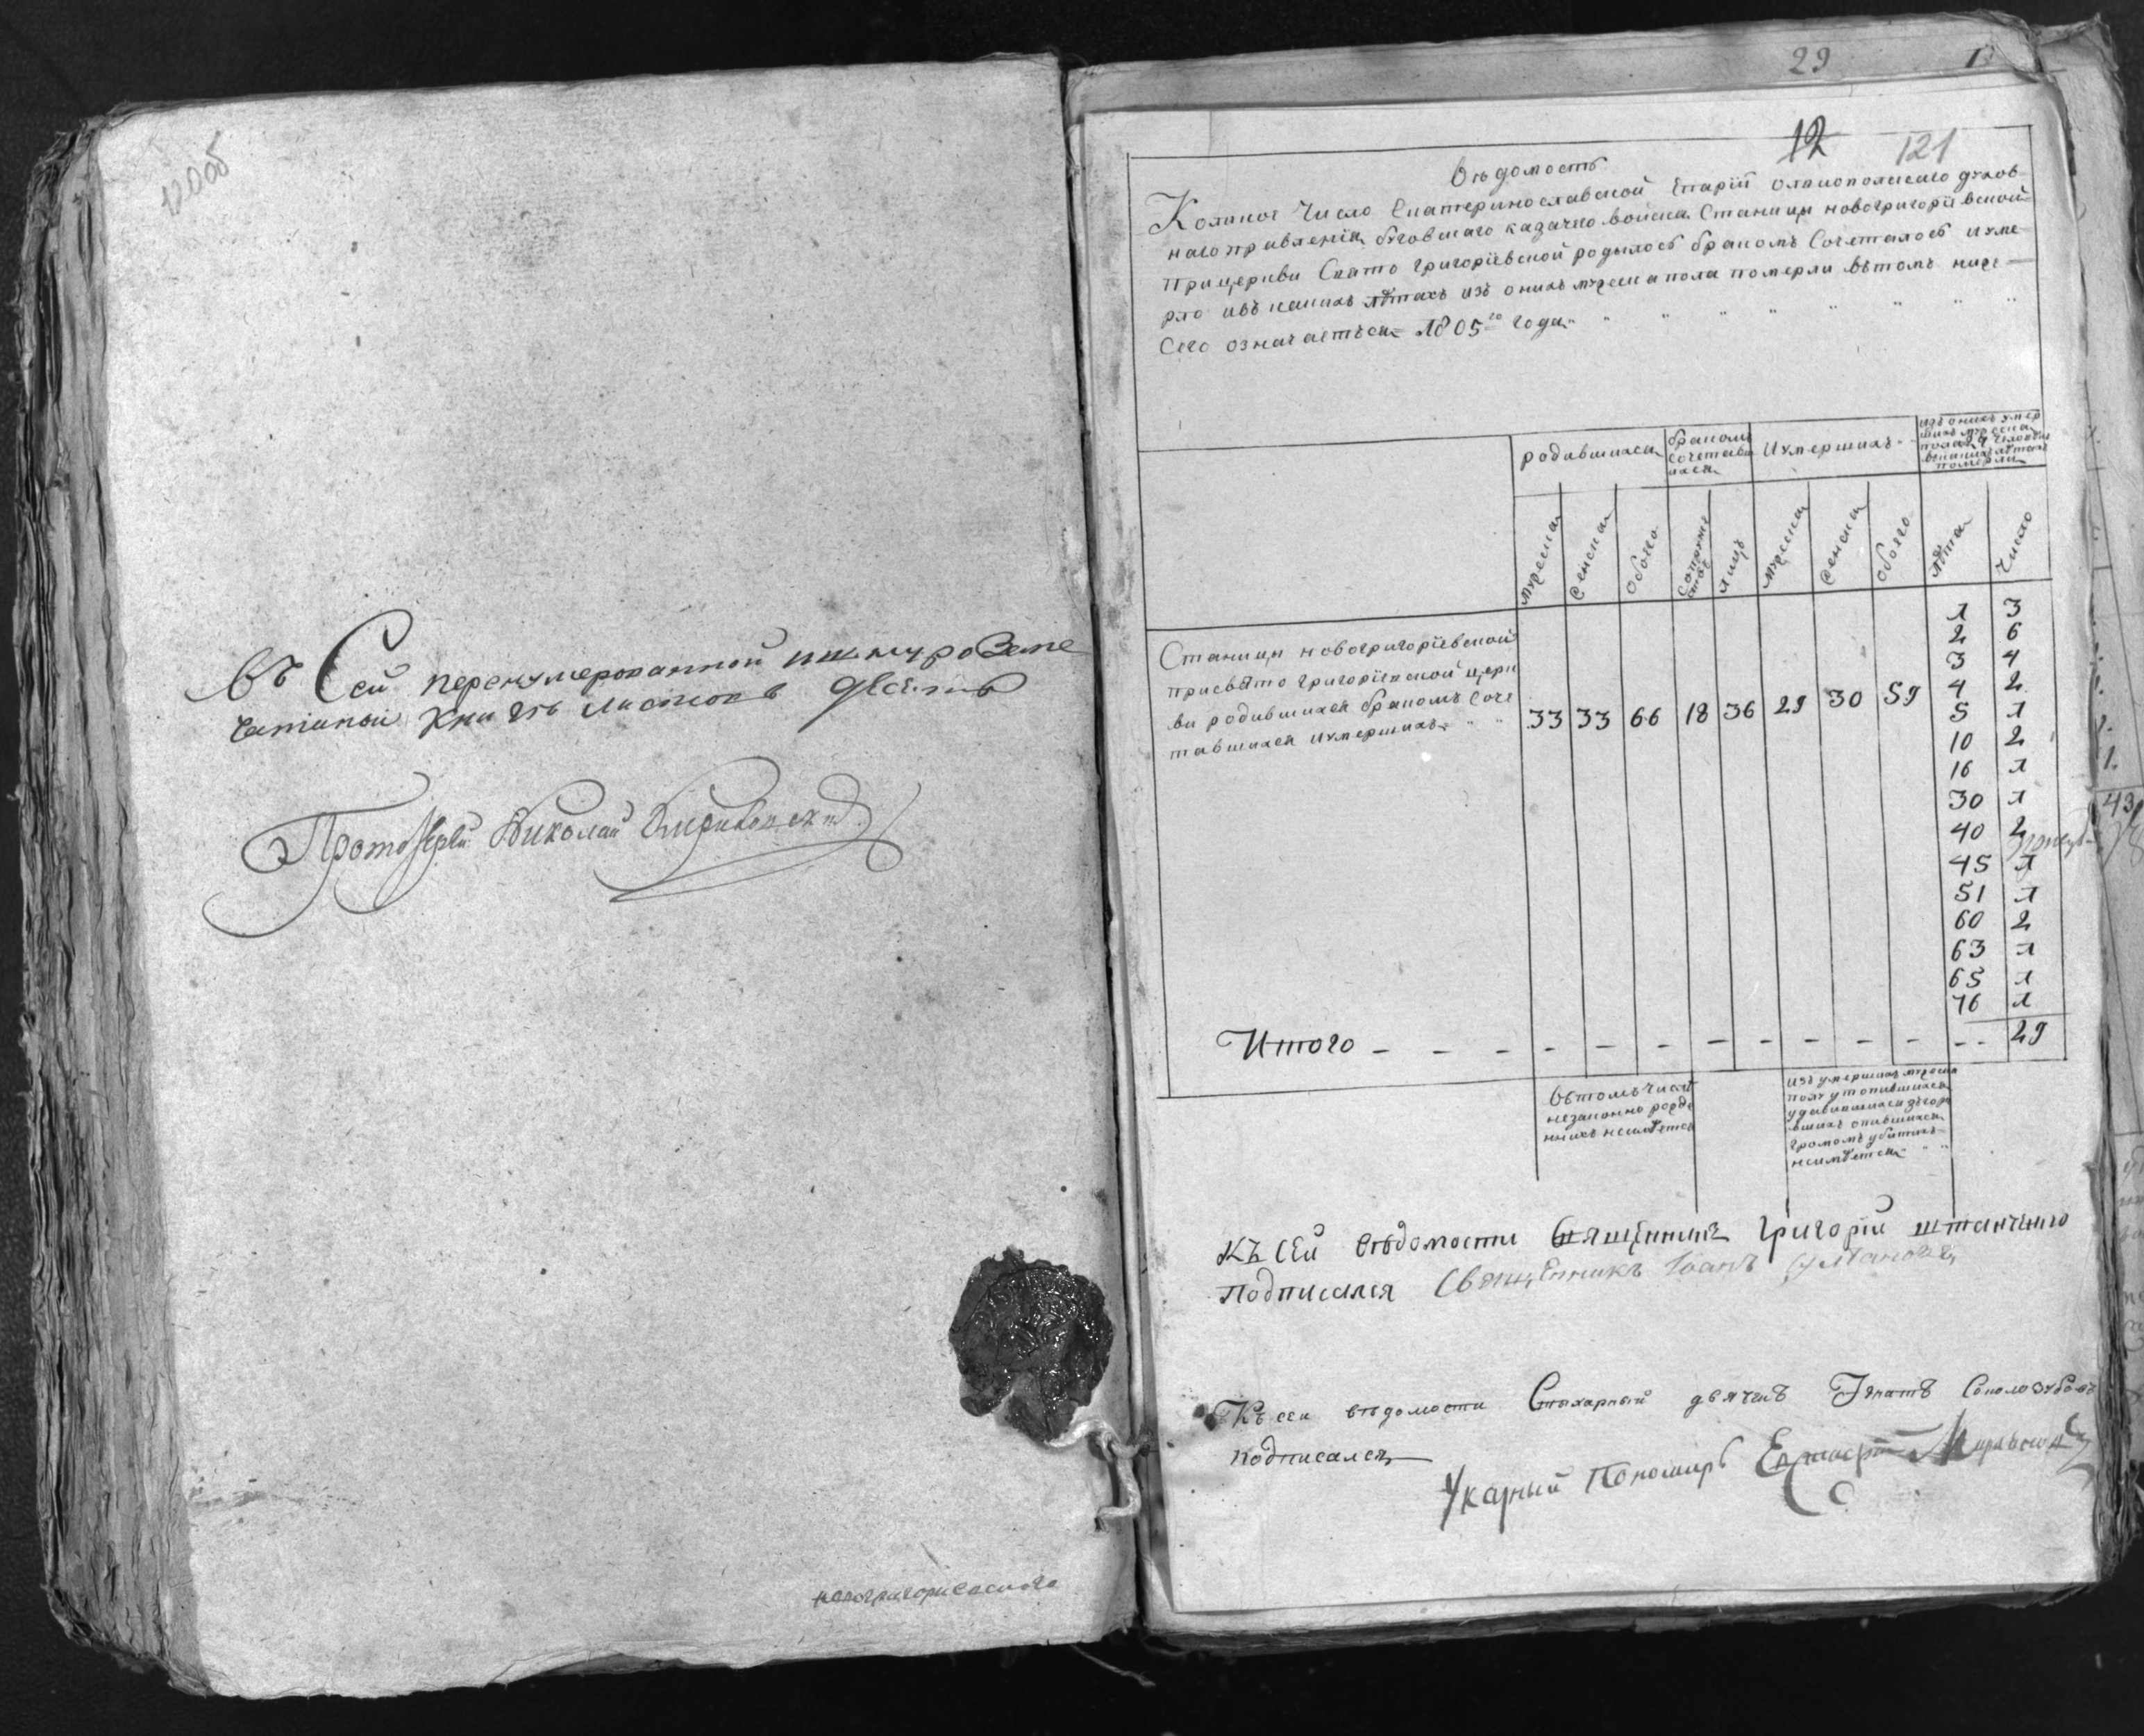 120об
Въ Сей перенумерованной и шнурозапе
чатаной Книгѣ листовъ десять
Протоіерей Николай
новогригориевского
29
12 121
Вѣдомость
Коликое Число Екатеринославской Епархїи олвиополскаго духов
наго правленїя буговскаго казачего войска Станицы новогригорїевской
прицеркви Свято григорїевской родилось бракомъ Сочеталось иуме
рло ивъ какихъ лѣтахъ изъ онихъ мужеска пола померли вѣтомъ ниже
Сего означаетъся 1805го года
родившихся
бракомъ
сочетавш
ихся
Иумершихъ
изъ онихъ умер
шихъ мужеска
пола
вкакихъ лѣтахъ
померли
мужеска
женска
обоего
лицъ
мужеска
женска
обоего
лѣта
Число
Станицы новогригорїевской
присвято григорїевской церк
ви родившихся бракомъ соче
тавшихся иумершихъ
33 33 66 18 36 29 30 59
1 3
2 6
3 4
4 2
5 1
10 2
16 1
30 1
40 2
45 1
51 1
60 2
63 1
65 1
76 1
Итого - - - - - - - - - - - - - 29
Вѣтомъ числѣ
незаконно рожде
нихъ неимѣетса
изъ умершихъ мужеска
полу утопившихся
удавившихся згорѣ
вшихъ опившихся
громомъ убитихъ
неимѣетса
Къ сей вѣдомости Священникъ Григорїй
подписался Священникъ Іоанъ
Къ сей вѣдомости Стихарный дьячекъ Игнатъ
подписался
Указный Пономарь